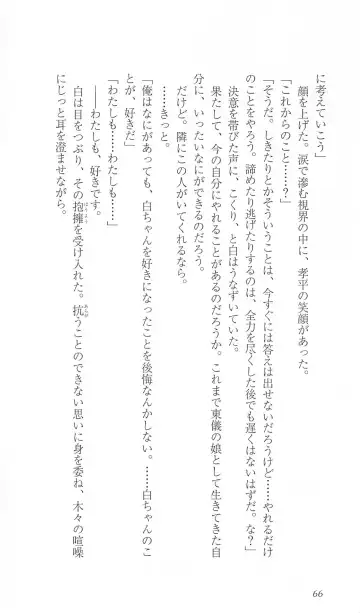 に考えていこう」
　顔を上げた。涙で滲む視界の中に、孝平の笑顔があった。
「これからのこと……？」
「そうだ。しきたりとかそういうことは、今すぐには答えは出せないだろうけど……やれるだけ
のことをやろう。諦めたり逃げたりするのは、全力を尽くした後でも遅くはないはずだ。な？」
　決意を帯びた声に、こくり、と白はうなずいていた。
　果たして、今の自分にやれることがあるのだろうか。これまで東儀の娘として生きてきた自
分に、いったいなにができるのだろう。
　だけど。隣にこの人がいてくれるなら。
　……きっと。
「俺はなにがあっても、白ちゃんを好きになったことを後悔なんかしない。……白ちゃんのこ
とが、好きだ」
「わたしも……わたしも……」
　――わたしも、好きです。
　白は目をつぶり、その抱擁を受け入れた。抗うことのできない思いに身を委ね、木々の喧噪
にじっと耳を澄ませながら。
66